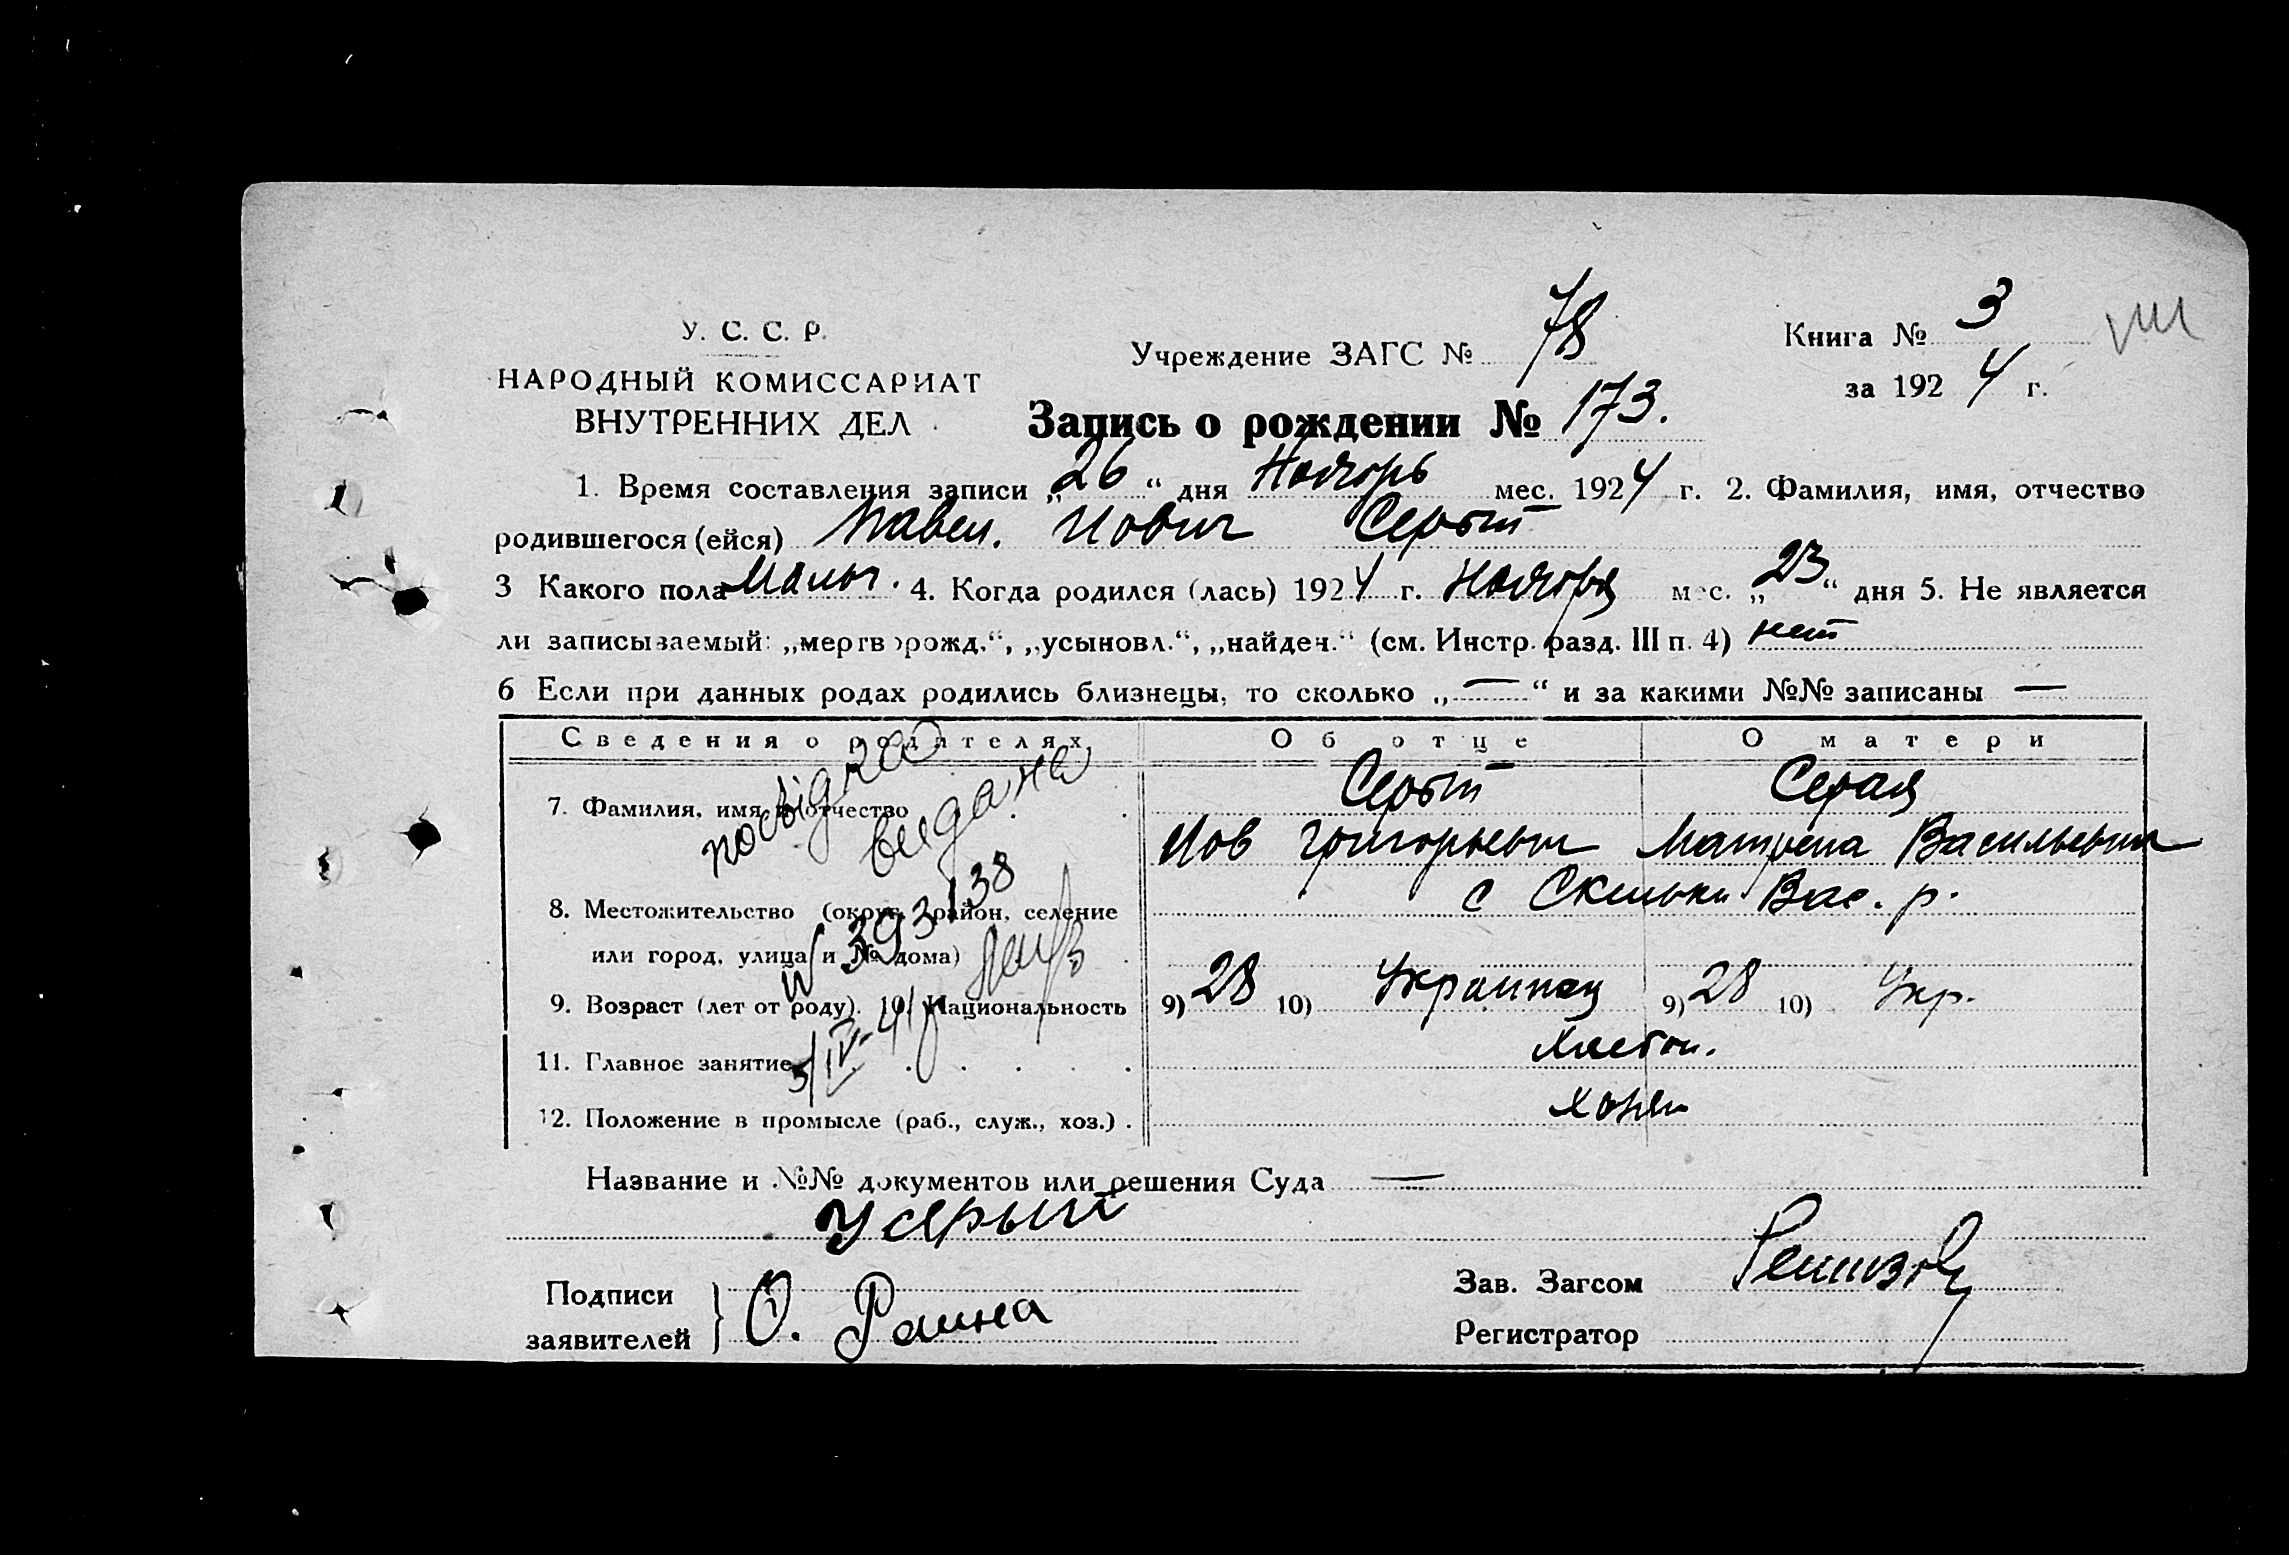 У. С. С. Р.
НАРОДНЫЙ КОМИССАРИАТ
ВНУТРЕННИХ ДЕЛ
Учреждение ЗАГС № 78
Книга № 3
за 1924 г.
Запись о рождении № 173.
1. Время составления записи „26“ дня Ноября мес. 1924 г. 2. Фамилия, имя, отчество
родившегося (ейся) Павел. Иович Серый
3 Какого пола Мальч. 4. Когда родился (лась) 1924 г. Ноября мес. „23“ дня 5. Не является
ли записываемый: „мертворожд.“, „усыновл.“, „найден.“ (см. Инстр. разд. III п. 4) нет
6 Если при данных родах родились близнецы, то сколько „—“ и за какими №№ записаны —
Сведения о родителях Об отце О матери
7. Фамилия, имя и отчество Серый Серая
Иов Григорьевич Матрена Васильевна
8. Местожительство (округ, район, селение с Вас. р.
или город, улица и № дома)
9. Возраст (лет от роду). 10. Национальность 9) 28 10) Украинец 9) 28 10) Укр.
11. Главное занятие Хлебоп.
12. Положение в промысле (раб., служ., хоз.) . Хозяин
посвідка
видана
N 393138
5/IV-41
Название и №№ документов или решения Суда —
Усерый
Подписи
заявителей
О. Раина
Зав. Загсом
Регистратор